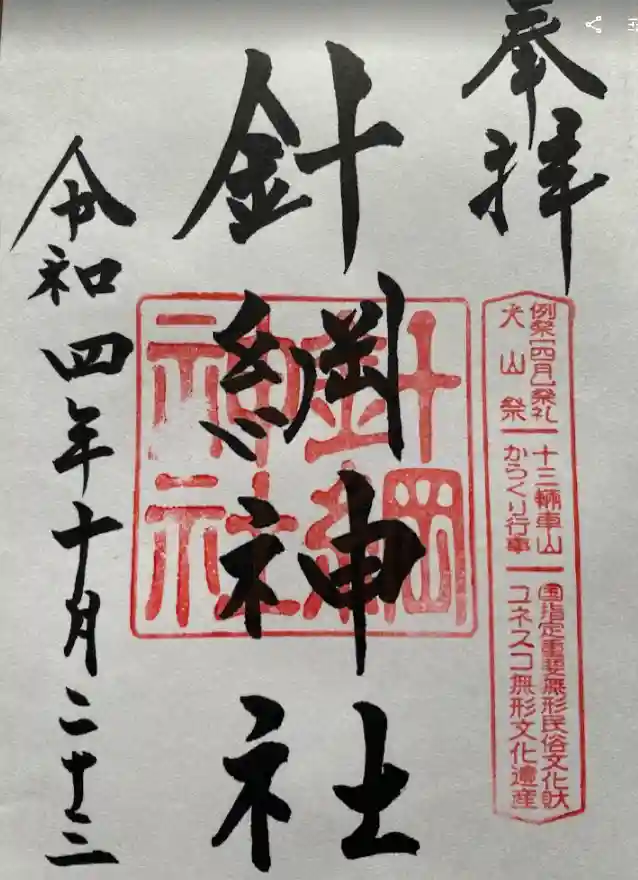 奉拝
例祭「四月」祭礼
犬山祭
十三輌車山
からくり行事
国指定重要無形民俗文化財
ユネスコ無形文化遺産
針綱神社
針綱
神社
令和四年十月二十三